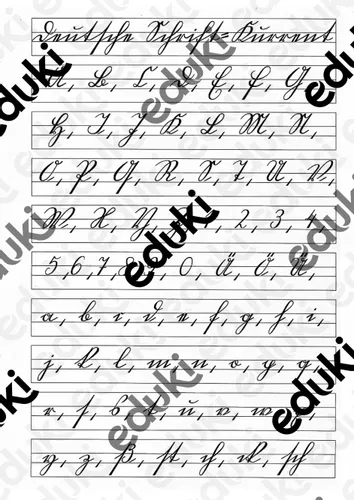 Deutsche Schrift=Kurrent
A, B, C, D, E, F, G,
H, I, J, K, L, M, N,
O, P, Q, R, S, T, U, V,
W, X, Y, 2, 3, 4,
5, 6, 7, 8, 9, 0, Ä, Ö, Ü,
a, b, c, d, e, f, g, h, i,
j, k, l, m, n, o, p, q,
r, s, t, u, v, w,
y, z, ß, st, ch, ck, sch
eduki
eduki
eduki
eduki
eduki
eduki
eduki
eduki
eduki
eduki